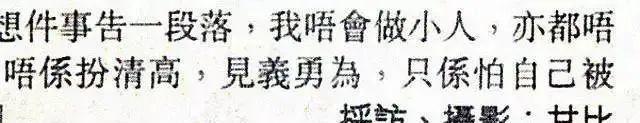 想件事告一段落，我唔會做小人，亦都唔
唔係扮清高，見義勇為，只係怕自己被
採訪、攝影：甘比